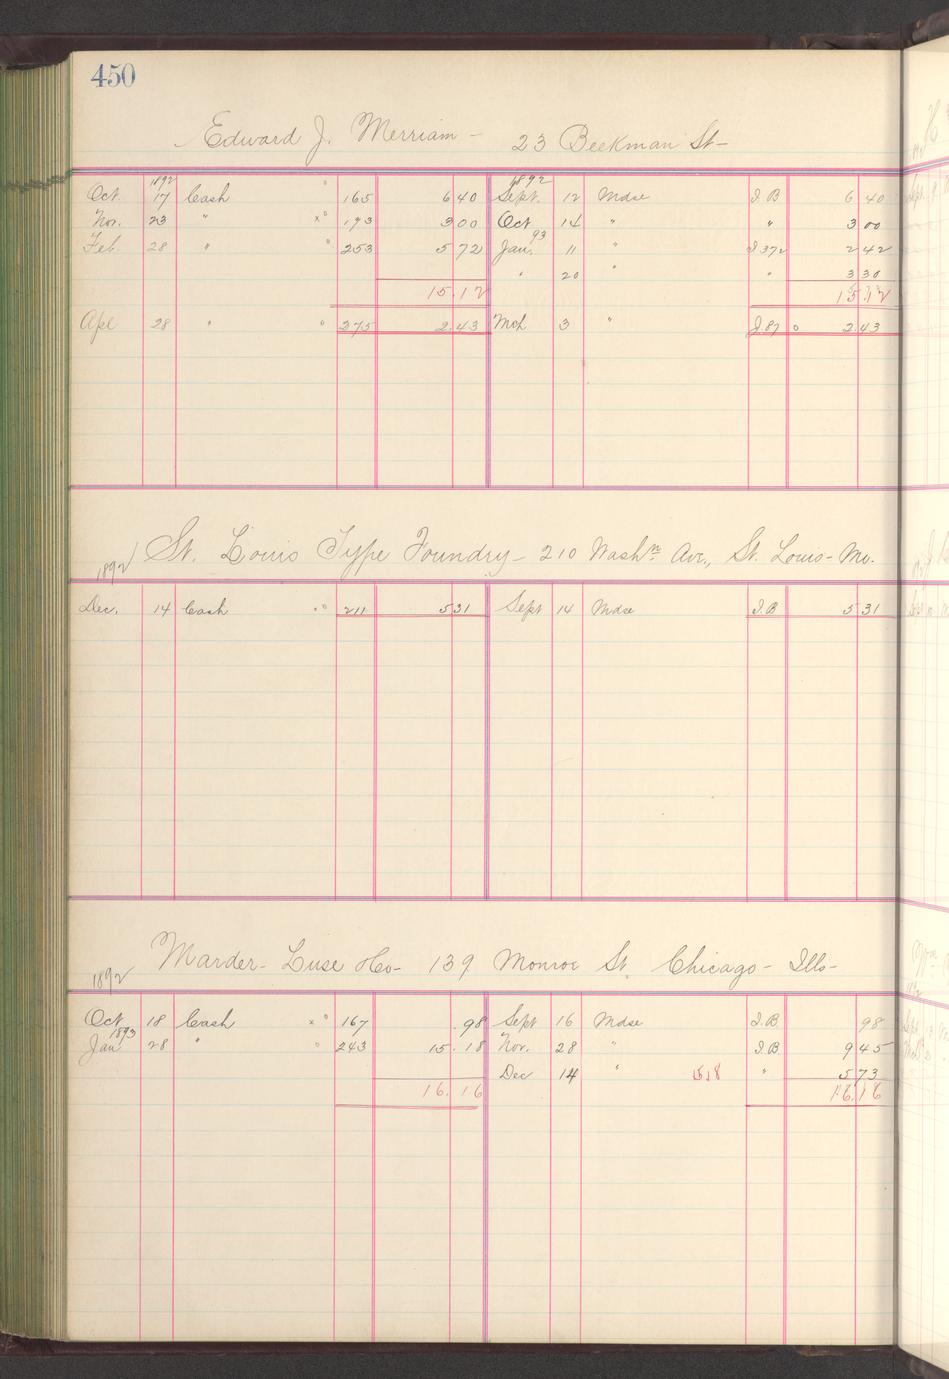 450
Edward J. Merriam - 23 Beekman St -
1892 1892
Oct. 17 Cash 165 6 40 Sept. 12 Mdse I.B 6 40
Nov. 23 " x° 193 3 00 Oct 14 " " 3 00
93
Feb. 28 " ° 253 5 72 Jan. 11 " J 372 2 42
" 20 " " 3 30
15.12 15.12
Apl 28 " ° 275 2.43 Mch 3 " J 87 2.43
St. Louis Type Foundry - 210 Washn Av., St. Louis - Mo.
1892
Dec. 14 Cash 211 5 31 Sept 14 Mdse I.B 5 31
Marder - Luse & Co - 139 Monroe St. Chicago - Ills -
1892
Oct 18 Cash x° 167 .98 Sept 16 Mdse I.B. 98
1893
Jan 28 " ° 243 15.18 Nov. 28 " I.B. 9 45
Dec 14 " 15,18 " 5 73
16.16 16.16